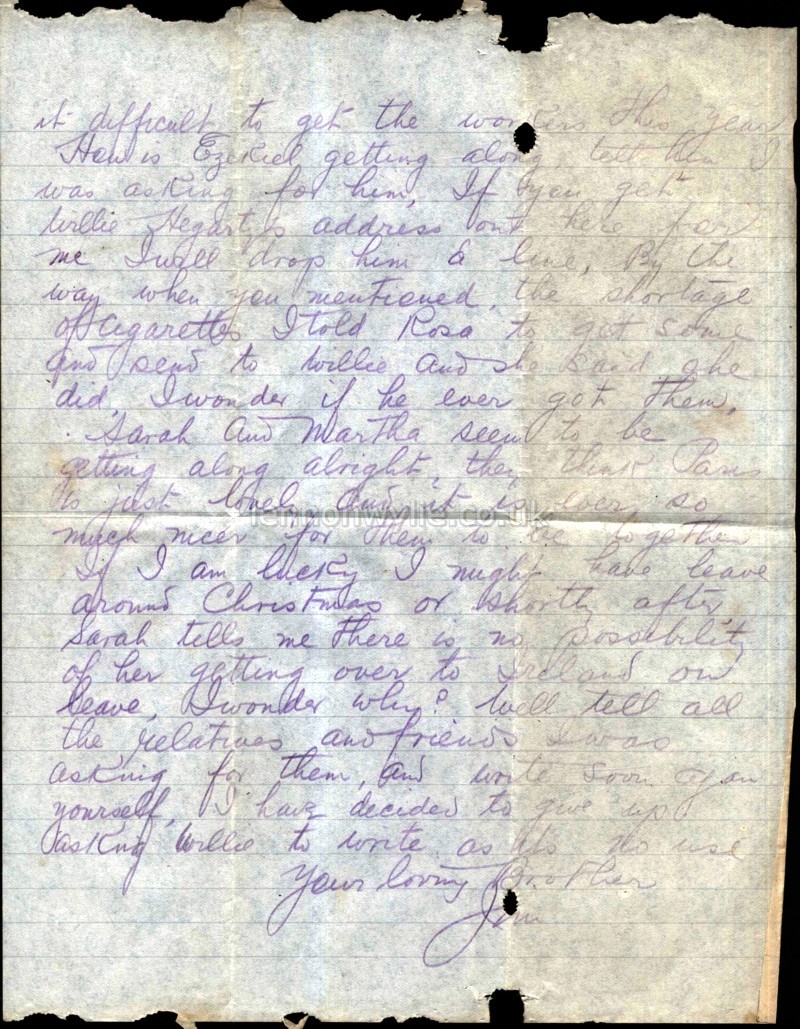 it difficult to get the workers this year
How is Ezekiel getting along tell him I
was asking for him, If you get
Willie Hegarty's address out here for
me I will drop him a line, By the
way when you mentioned, the shortage
of Cigarettes I told Rosa to get some
and send to Willie and she said she
did, I wonder if he ever got them,
Sarah and Martha seem to be
getting along alright, they think Paris
is just lovely And it is ever so
lennonwylie.co.uk
much nicer for them to be together
If I am lucky I might have leave
around Christmas or shortly after,
Sarah tells me there is no possibility
of her getting over to Ireland on
leave, I wonder why? Well tell all
the relatives and friends I was
asking for them, and write soon
yourself, I have decided to give up
asking Willie to write as its no use
Your loving Brother
Jim